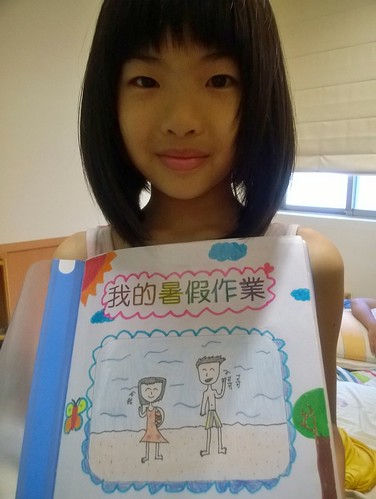 我的暑假作業